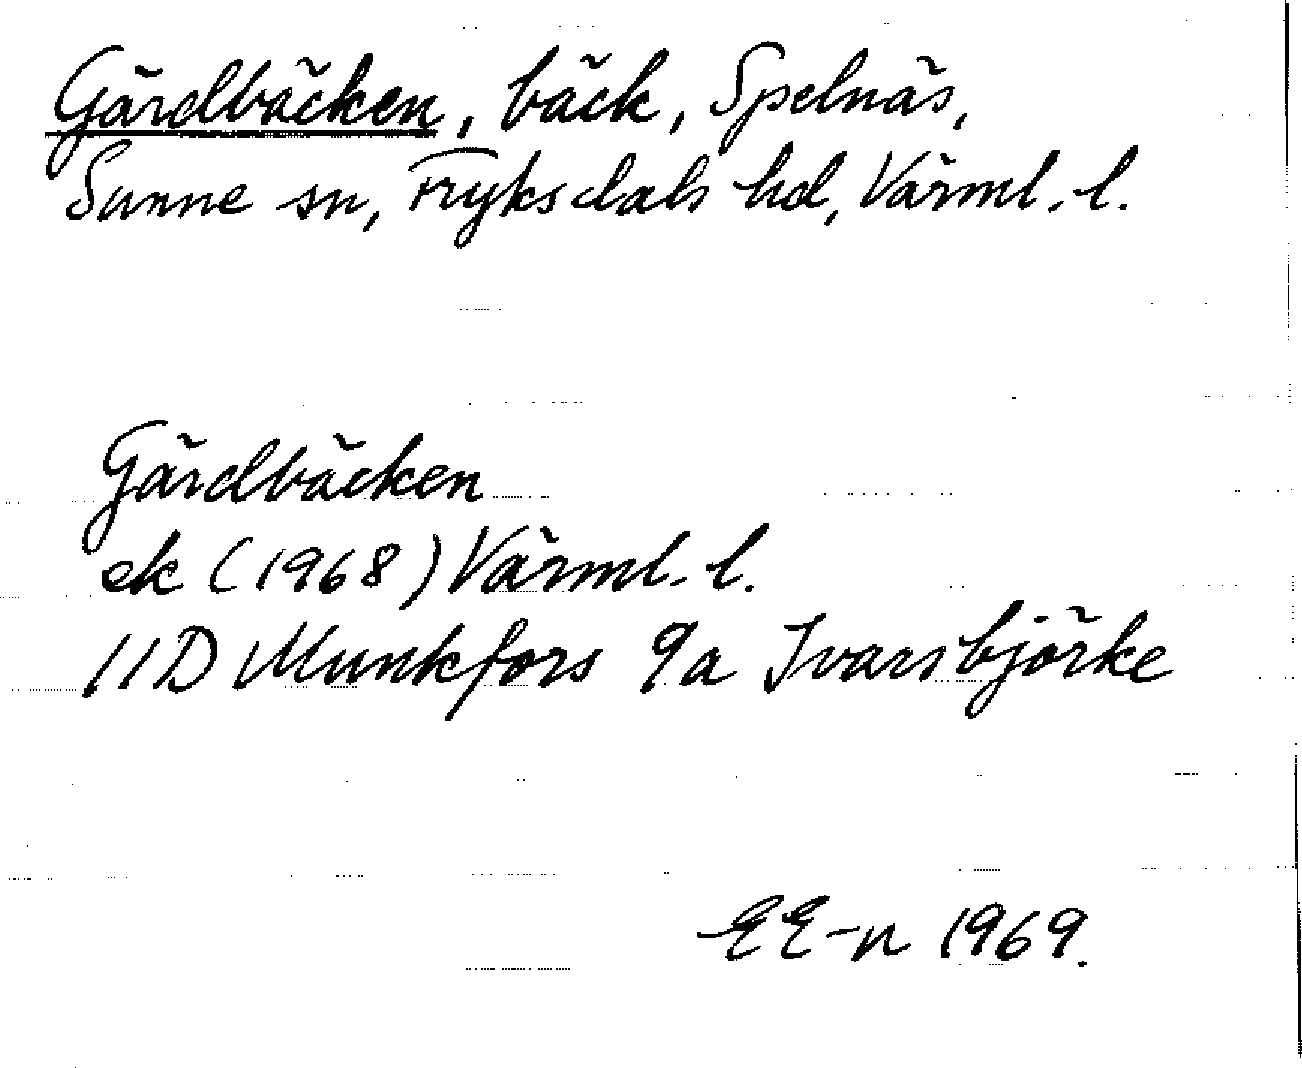 Gärdbäcken, bäck, Spelnäs,
Sunne sn, Fryksdals hd, Värml. l.
Gärdbäcken
ek (1968) Värml. l.
11D Munkfors 9a Ivarsbjörke
EE-n 1969.